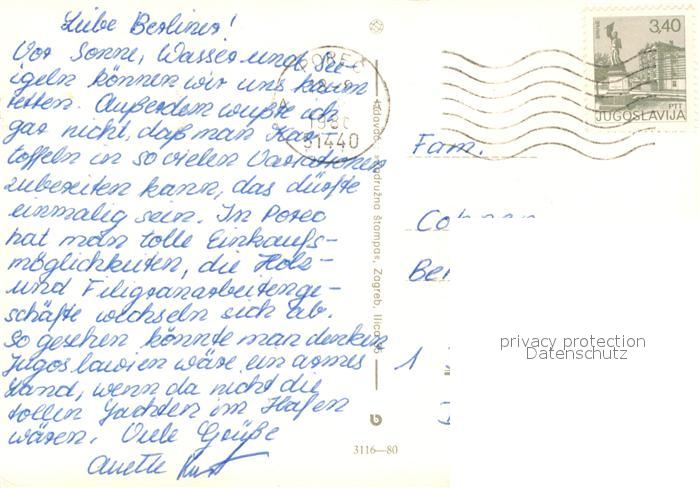 Liebe Berliner!
Vor Sonne, Wasser und See-
igeln können wir uns kaum
retten. Außerdem wußte ich
gar nicht, daß man Kar-
toffeln in so vielen Variationen
zubereiten kann, das dürfte
einmalig sein. In Porec
hat man tolle Einkaufs-
möglichkeiten, die Holz-
und Filigranarbeitenge-
schäfte wechseln sich ab.
So gesehen könnte man denken
Jugoslawien wäre ein armes
Land, wenn da nicht die
tollen Yachten im Hafen
wären. Viele Grüße
Anette
POREČ
51440
štampas, Zagreb, Ilica
3116—80
3,40
PTT
JUGOSLAVIJA
Fam.
1
privacy protection
Datenschutz